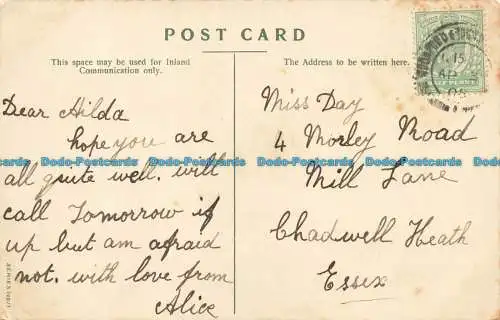 POST CARD
This space may be used for Inland
Communication only.
The Address to be written here.
Dear Hilda
hope you are
all quite well. will
call Tomorrow if
up but am afraid
not. with love from
Alice
Miss Day
4 Morley Road
Mill Lane
Chadwell Heath
Essex
Dodo-Postcards Dodo-Postcards Dodo-Postcards Dodo-Postcards